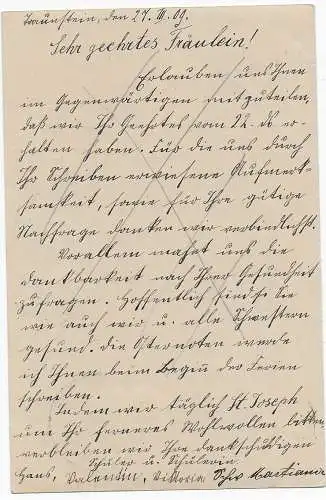 Traunstein, den 27. III. 09.
Sehr geehrtes Fräulein!
Erlauben uns Ihnen
im Gegenwärtigen mitzuteilen,
daß wir Ihr Geehrtes vom 22. ds er-
halten haben. Für die uns durch
Ihr Schreiben erwiesene Aufmerk-
samkeit, sowie für Ihre gütige
Nachfrage danken wir verbindlichst.
Vorallem mahnt uns die
Dankbarkeit nach Ihrer Gesundheit
zufragen. Hoffentlich sind Sie
wie auch wir u. alle Schwestern
gesund. Die Osternoten werde
ich Ihnen beim Beginn der Ferien
schreiben.
Indem wir täglich St. Joseph
um Ihr ferneres Wohlwollen bitten
verbleiben wir Ihre dankschuldigen
Schüler u. Schülerin
Hans, Valentin, Viktoria